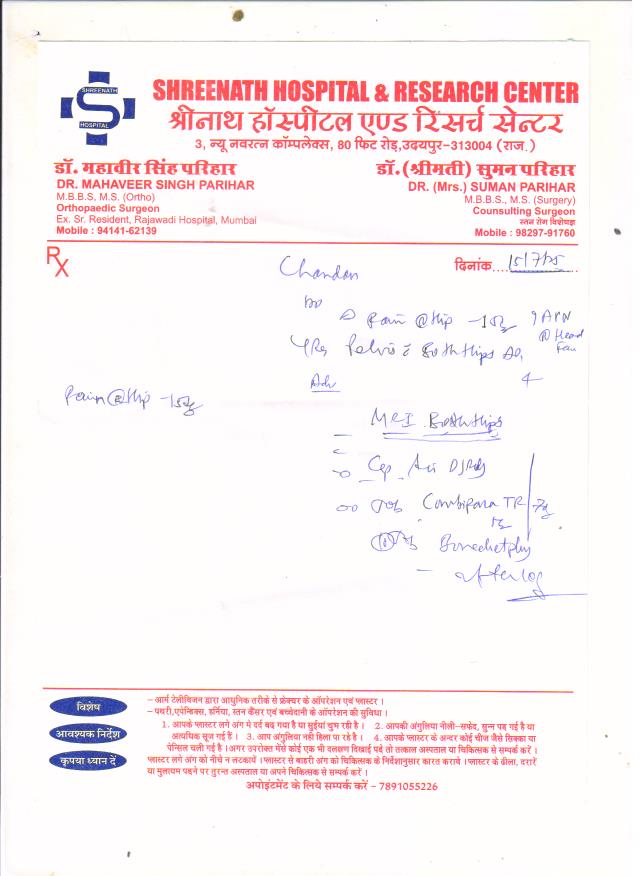 SHREENATH
S
HOSPITAL
SHREENATH HOSPITAL & RESEARCH CENTER
श्रीनाथ हॉस्पीटल एण्ड रिसर्च सेन्टर
3, न्यू नवरत्न कॉम्पलेक्स, 80 फिट रोड़, उदयपुर-313004 (राज.)
डॉ. महावीर सिंह परिहार
DR. MAHAVEER SINGH PARIHAR
M.B.B.S, M.S. (Ortho)
Orthopaedic Surgeon
Ex. Sr. Resident, Rajawadi Hospital, Mumbai
Mobile : 94141-62139
डॉ. (श्रीमती) सुमन परिहार
DR. (Mrs.) SUMAN PARIHAR
M.B.B.S., M.S. (Surgery)
Counsulting Surgeon
स्तन रोग विशेषज्ञ
Mobile : 98297-91760
Rx
दिनांक
Chandan
Pain @ Hip
? AVN
@ Head
Pelvis c Both Hips
Adv
Pain @ Hip
MRI Both Hips
Cap
Tab Combipara TR
विशेष
आवश्यक निर्देश
कृपया ध्यान दें
– आर्म टेलीविजन द्वारा आधुनिक तरीके से फ्रेक्चर के ऑपरेशन एवं प्लास्टर ।
– पथरी,एपेन्डिक्स, हर्निया, स्तन कैंसर एवं बच्चेदानी के ऑपरेशन की सुविधा ।
1. आपके प्लास्टर लगे अंग मे दर्द बढ़ गया है या सुईयां चुभ रही है । 2. आपकी अंगुलिया नीली-सफेद, सुन्न पड़ गई है या
अत्यधिक सूज गई हैं । 3. आप अंगुलिया नही हिला पा रहे है । 4. आपके प्लास्टर के अन्दर कोई चीज जैसे सिक्का या
पेन्सिल चली गई है ।अगर उपरोक्त मेंसे कोई एक भी लक्षण दिखाई पडे तो तत्काल अस्पताल या चिकित्सक से सम्पर्क करें ।
प्लास्टर लगे अंग को नीचे न लटकायें । प्लास्टर से बाहरी अंग को चिकित्सक के निर्देशानुसार कारत कराये । प्लास्टर के ढीला, दरारें
या मुलायम पडने पर तुरन्त अस्पताल या अपने चिकित्सक से सम्पर्क करें ।
अपोइंटमेंट के लिये सम्पर्क करें - 7891055226